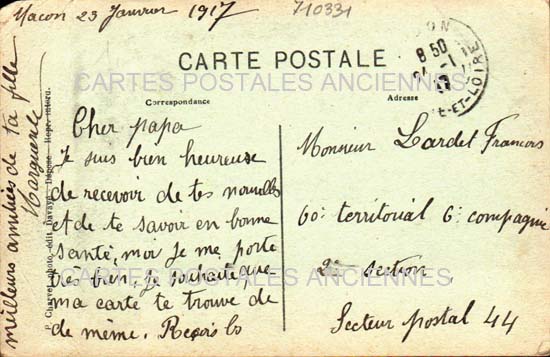 Macon 23 Janvier 1917
710331
CARTE POSTALE
CARTES POSTALES ANCIENNES
Correspondance
Adresse
ON
8 50
24 -1
17
E-ET-LOIRE
Cher papa
Je suis bien heureuse
de recevoir de tes nouvelles
et de te savoir en bonne
santé, moi je me porte
très bien. Je souhaite que
ma carte te trouve de
de même. Reçois les
meilleurs amitiées de ta fille
Marguerite
Monsieur Lardet Francois
60e territorial 6e compagnie
2e section
Secteur postal 44
CARTES POSTALES ANCIENNES
photo. édit. Davayé